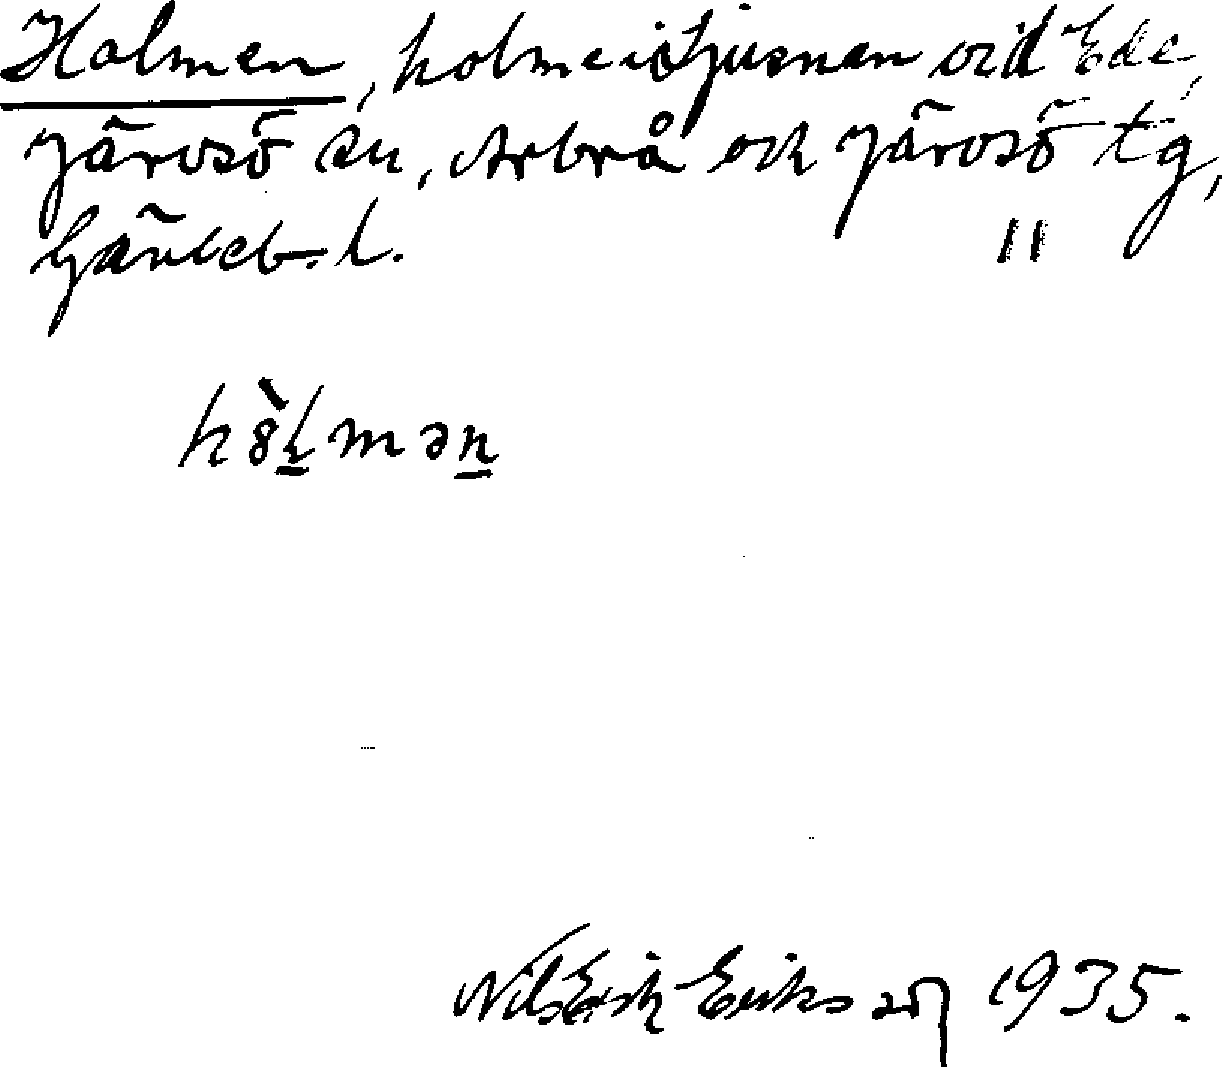 Holmen, holme i Ljusnan vid Ede,
Järvsö sn, Arbrå och Järvsö tg,
Gävleb. l. "
Nils Erik Eriksson 1935.